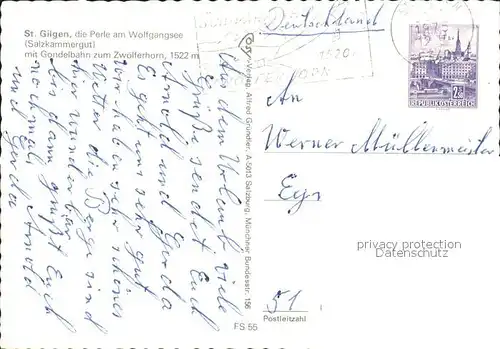 St. Gilgen, die Perle am Wolfgangsee
(Salzkammergut)
mit Gondelbahn zum Zwölferhorn, 1522 m
Aus dem Urlaub viele
Grüße sendet Euch
Arnold und Gerda
Es geht uns sehr gut
wir haben sehr schönes
Wetter die Berge sind
hier wunderbar
bis dann grüßt Euch
nochmal
Gerda Arnold
Cosy-Verlag, Alfred Gründler, A-5013 Salzburg, Münchner Bundesstr. 156
FS 55
Deutschland
1520
2.80
REPUBLIK ÖSTERREICH
An
Werner Müllermeister
51
Postleitzahl
privacy protection
Datenschutz